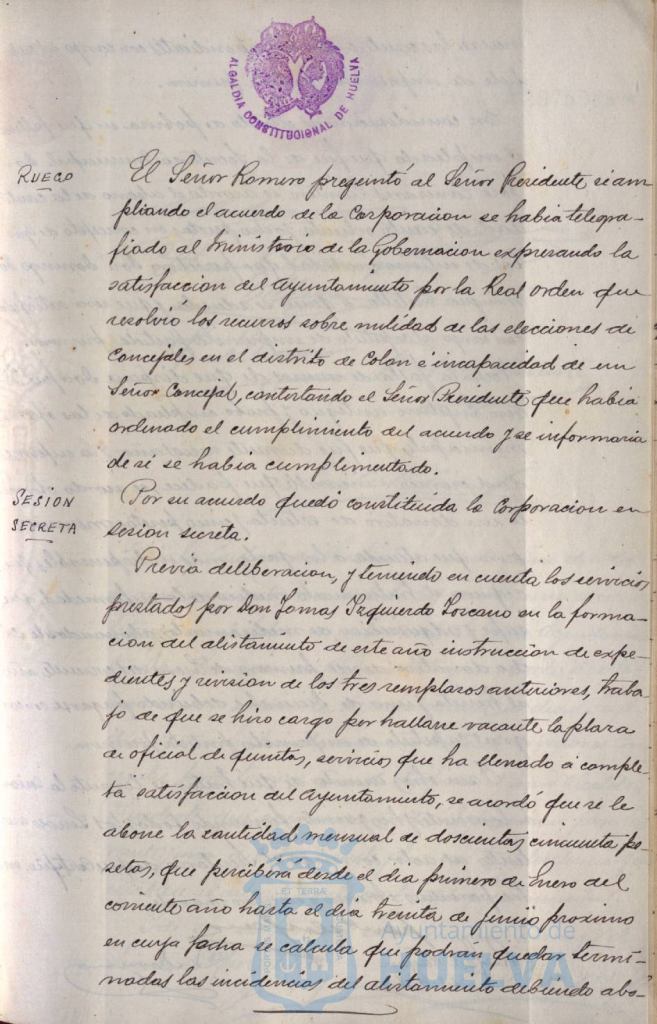 ALCALDIA CONSTITUCIONAL DE HUELVA
RUEGO
El Señor Romero preguntó al Señor Presidente si am-
pliando el acuerdo de la Corporacion se habia telegra-
fiado al Ministerio de la Gobernacion expresando la
satisfaccion del Ayuntamiento por la Real orden que
resolvió los recursos sobre nulidad de las elecciones de
Concejales en el distrito de Colon é incapacidad de un
Señor Concejal, contestando el Señor Presidente que habia
ordenado el cumplimiento del acuerdo y se informaria
de si se habia cumplimentado.
SESION
SECRETA
Por su acuerdo quedó constituida la Corporacion en
sesion secreta.
Previa deliberacion, y teniendo en cuenta los servicios
prestados por Don Tomas Izquierdo Lozcano en la forma-
cion del alistamiento de este año instruccion de expe-
dientes y revision de los tres remplazos anteriores, traba-
jo de que se hizo cargo por hallarse vacante la plaza
de oficial de quintas, servicios que ha llenado á comple-
ta satisfaccion del Ayuntamiento, se acordó que se le
abone la cantidad mensual de doscientas cincuenta pe-
setas, que percibirá desde el dia primero de Enero del
corriente año hasta el dia treinta de Junio proximo
en cuya fecha se calcula que podrán quedar termi-
nadas las incidencias del alistamiento debiendo abo-
Ayuntamiento de
HUELVA